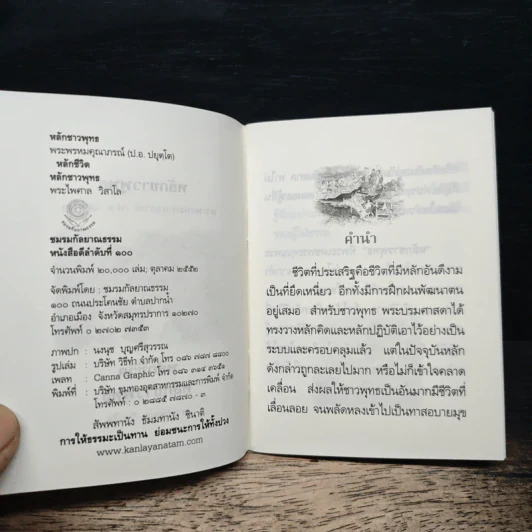 หลักชาวพุทธ
พระพรหมคุณาภรณ์ (ป.อ. ปยุตฺโต)
หลักชีวิต
หลักชาวพุทธ
พระไพศาล วิสาโล
ชมรมกัลยาณธรรม
หนังสือดีลำดับที่ ๑๐๐
จำนวนพิมพ์ ๒๐,๐๐๐ เล่ม, ตุลาคม ๒๕๕๒
จัดพิมพ์โดย : ชมรมกัลยาณธรรม
๑๐๐ ถนนประโคนชัย ตำบลปากน้ำ
อำเภอเมือง จังหวัดสมุทรปราการ ๑๐๒๗๐
โทรศัพท์ ๐ ๒๗๐๒ ๗๓๕๓
ภาพปก : นงนุช บุญศรีสุวรรณ
รูปเล่ม : บริษัท วิธีทำ จำกัด โทร ๐๘๖ ๗๗๗ ๘๘๐๐
เพลท : Canna Graphic โทร ๐๘๖ ๓๑๔ ๓๖๕๑
พิมพ์ที่ : บริษัท ขุมทองอุตสาหกรรมและการพิมพ์ จำกัด
โทรศัพท์ : ๐ ๒๘๘๕ ๗๘๗๐ - ๓
สัพพทานัง ธัมมทานัง ชินาติ
การให้ธรรมะเป็นทาน ย่อมชนะการให้ทั้งปวง
www.kanlayanatam.com
คำนำ
ชีวิตที่ประเสริฐคือชีวิตที่มีหลักอันดีงาม
เป็นที่ยึดเหนี่ยว อีกทั้งมีการฝึกฝนพัฒนาตน
อยู่เสมอ สำหรับชาวพุทธ พระบรมศาสดาได้
ทรงวางหลักคิดและหลักปฏิบัติเอาไว้อย่างเป็น
ระบบและครอบคลุมแล้ว แต่ในปัจจุบันหลัก
ดังกล่าวถูกละเลยไปมาก หรือไม่ก็เข้าใจคลาด
เคลื่อน ส่งผลให้ชาวพุทธเป็นอันมากมีชีวิตที่
เลื่อนลอย จนพลัดหลงเข้าไปเป็นทาสอบายมุข